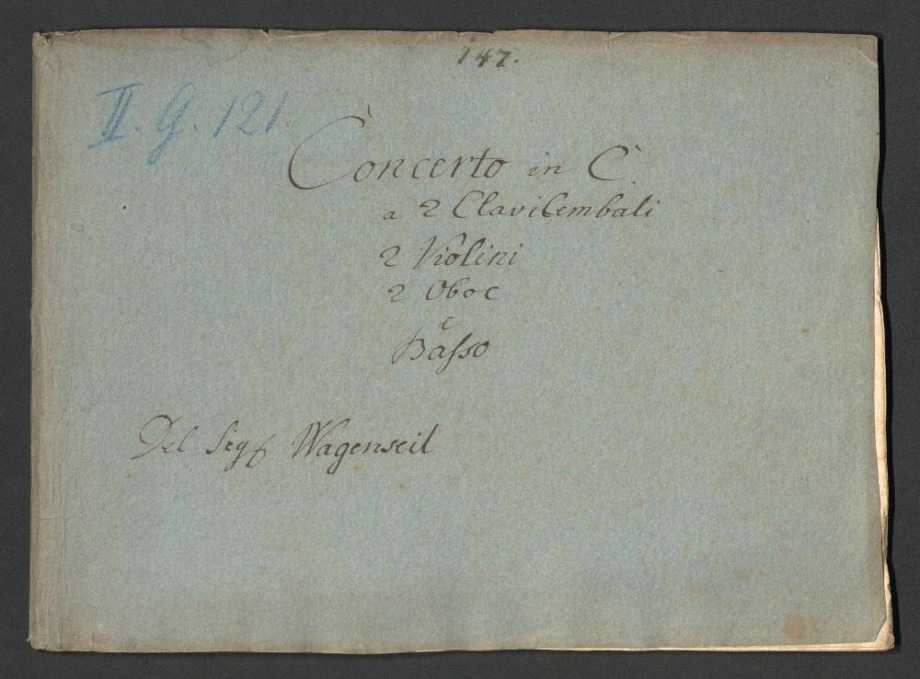 147.
II. G. 121.
Concerto in C
a 2 Clavicembali
2 Violini
2 Oboe
e
Basso
Del Sigr Wagenseil